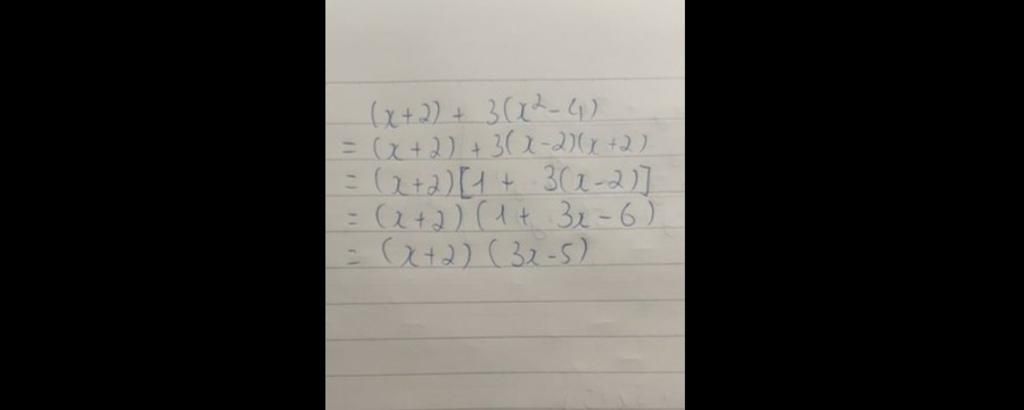 (x+2) + 3(x²-4)
= (x+2) + 3(x-2)(x+2)
= (x+2)[1 + 3(x-2)]
= (x+2)(1 + 3x-6)
= (x+2)(3x-5)